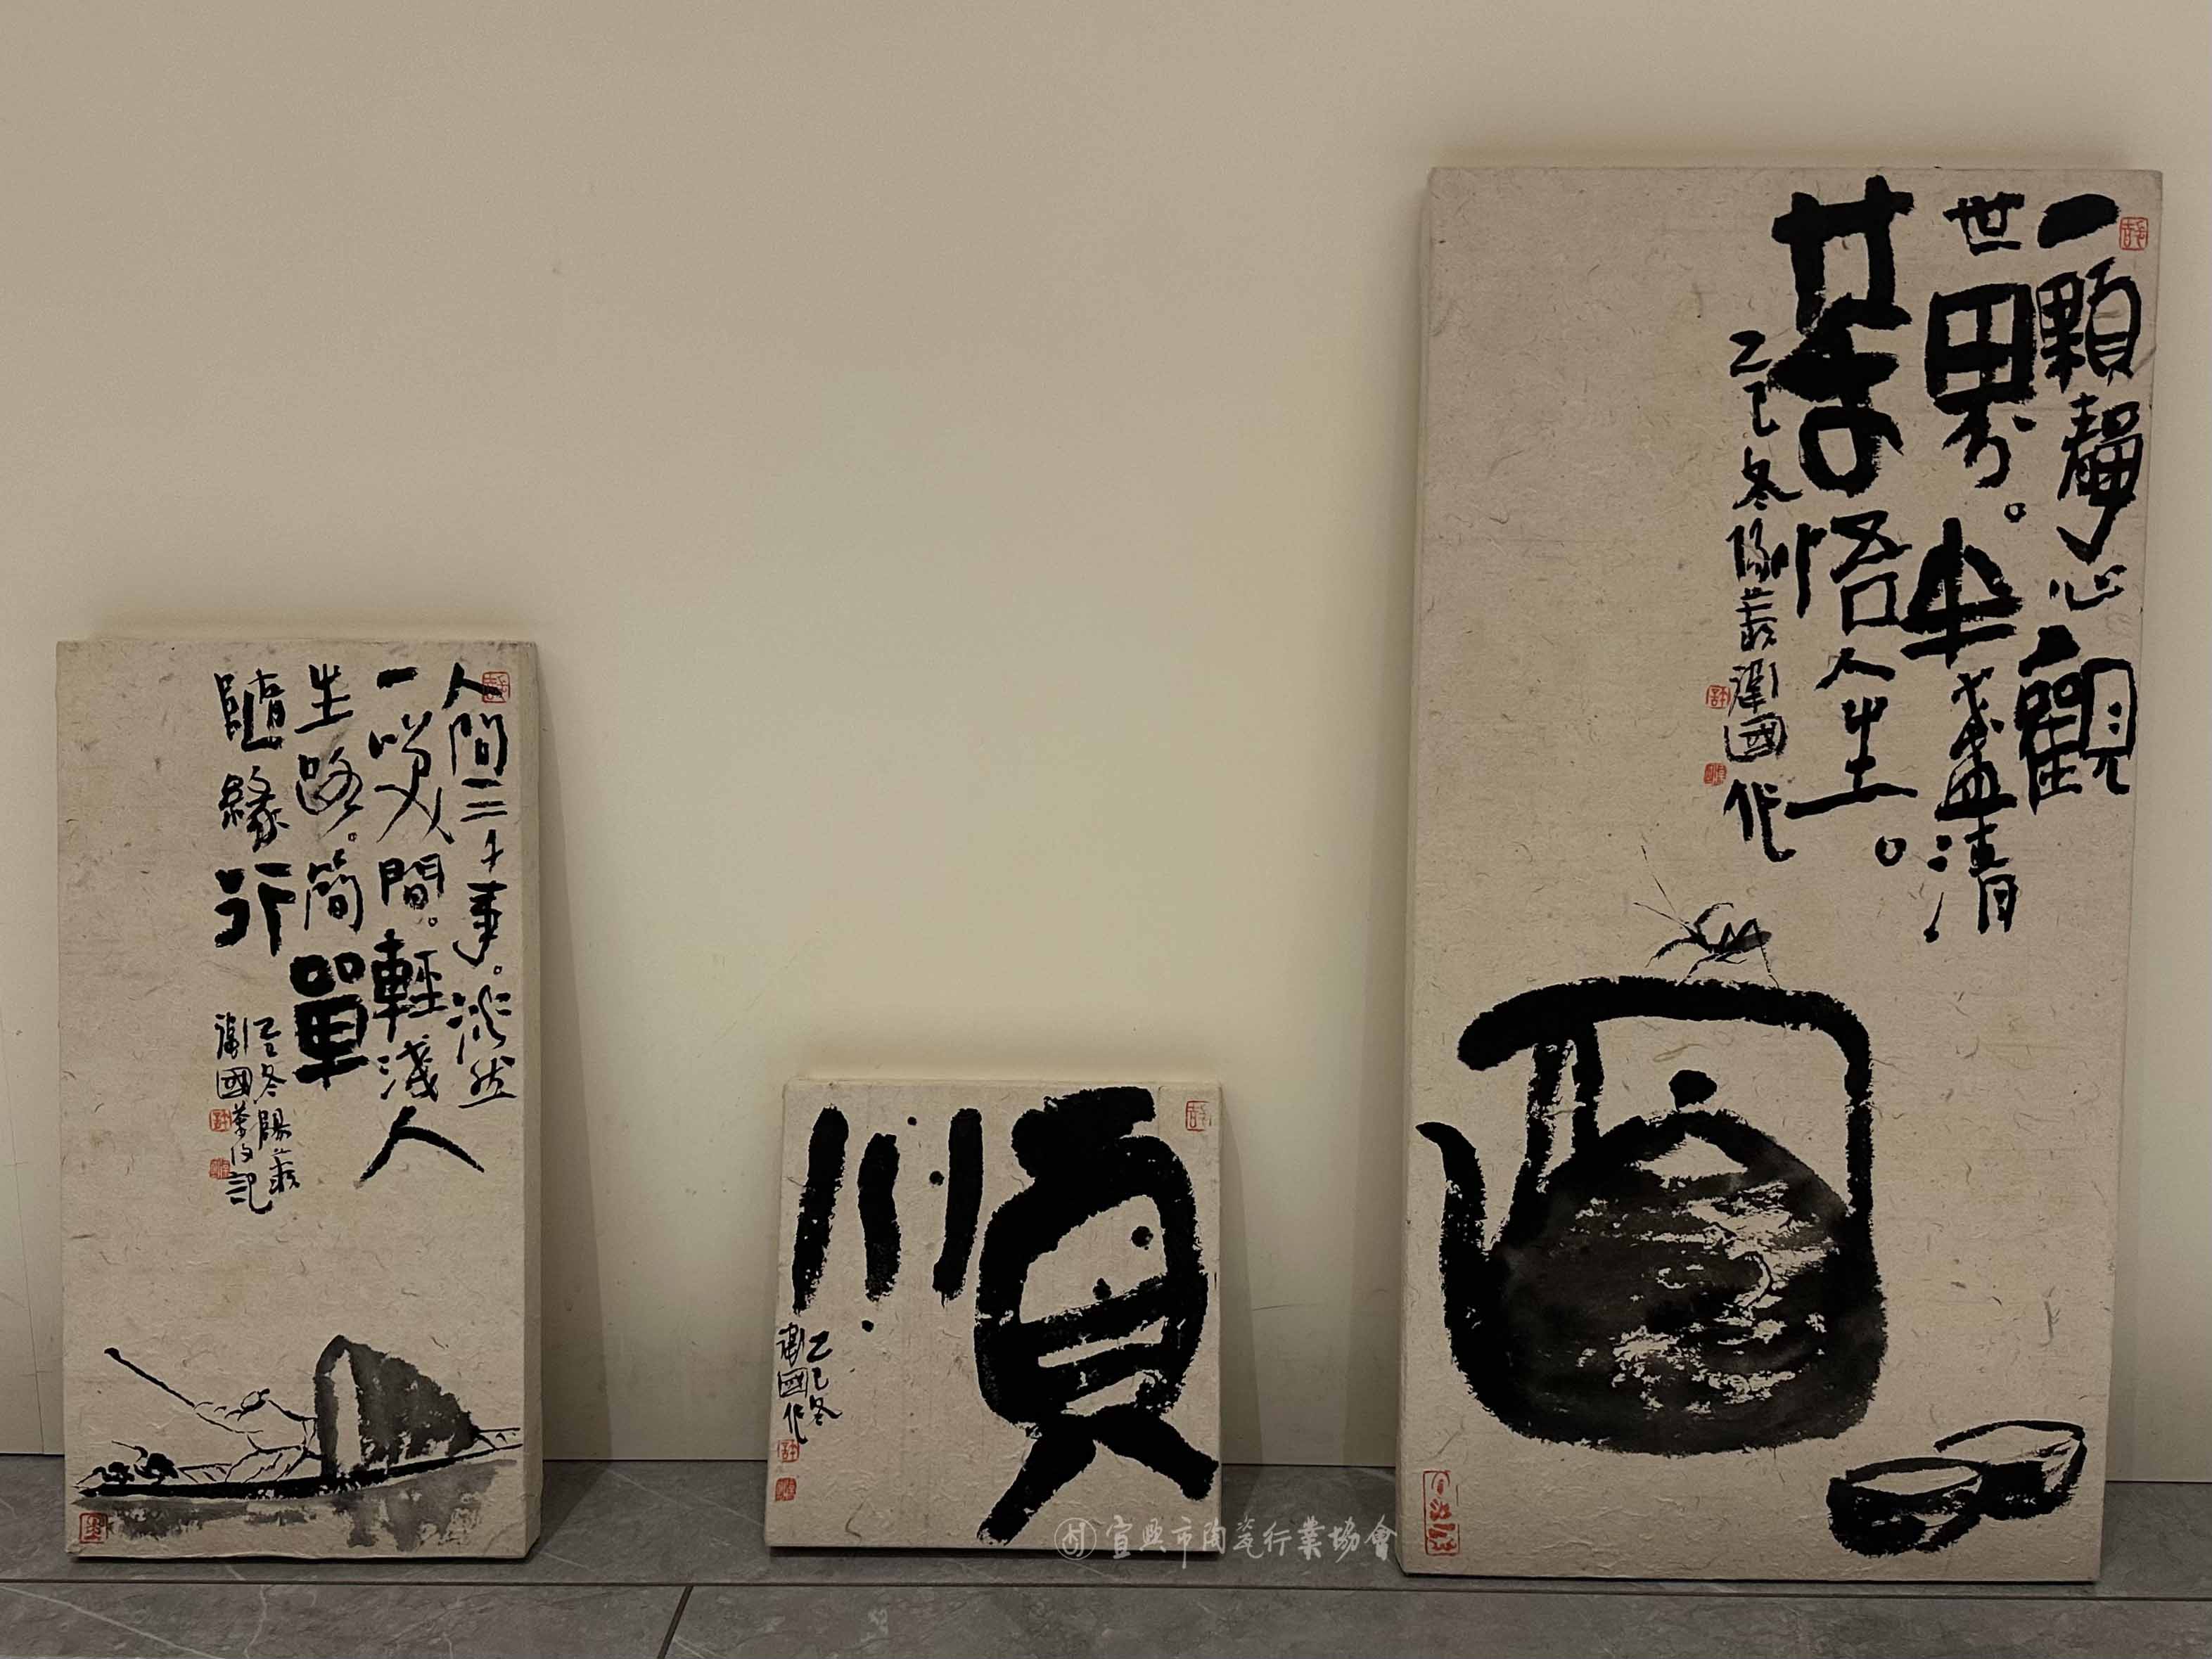 人間三千事。淡然
一笑間。輕淺人
生路。簡單
隨緣行
乙巳冬陽羨
國
記
順
乙巳冬
國作
一顆靜心觀
世界。半盞清
茶悟人生。
乙巳冬陽羨國作
宜興市陶瓷行業協會